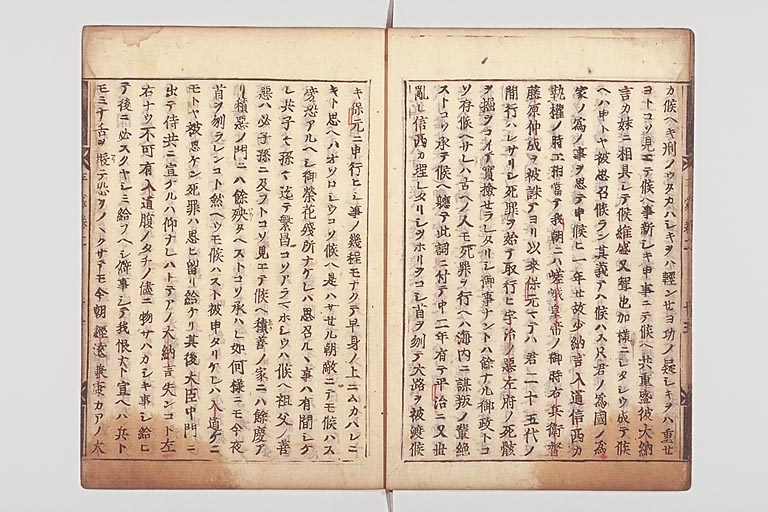 カ候ヘキ刑ノウタカハシキヲハ輕ンせヨ功ノ疑シキヲハ重せ
ヨトコソ見エテ候ヘ事新シキ申事ニテ候ヘ共重盛彼大納
言カ妹ニ相具シテ候維盛又聟也加樣ニシタシウ成テ候
ヘハ申トヤ被思召候ラン其義テハ候ハス只君ノ爲國ノ爲
家ノ爲ノ事ヲ思テ申候ヒ一年世故少納言入道信西カ
執權ノ時ニ相當テ我朝ニハ嵯峨皇帝ノ御時右兵衛督
藤原仲成ヲ被誅テヨリ以來保元マテハ君二十五代ノ
間行ハレサリシ死罪ヲ始テ取行ヒ宇治ノ悪左府ノ死骸
ヲ掘ヲコイテ實撿せラレタリシ御事ナントハ餘ナル御政トコ
ソ存候ヘサレハ古ヘノ人モ死罪ヲ行ヘハ海内ニ謀叛ノ輩絶
ストコソ承テ候ヘ此詞ニ付テ中二年有テ平治ニ又世
亂レ信西カ埋レタリシヲホリヲコシ首ヲ刎テ大路ヲ被渡候
キ保元ニ申行ヒシ事ノ幾程モナクテ早身ノ上ニムカハレニ
キト思ヘハオソロシウコソ候ヘ是ハサせル朝敵ニテモ候ハス
旁恐アルヘシ御榮花殘所ナケレハ思召ル丶事ハ有間シケ
レ共子々孫々迄テ繁昌コソアラマホシウハ候ヘ祖父ノ善
悪ハ必子孫ニ及ラトコソ見エテ候ヘ積善ノ家ニハ餘慶ア
リ積悪ノ門ニハ餘殃タヽストコソ承ハレ如何樣ニモ今夜
首ヲ刎ラレンコト然ヘウモ候ハスト被申タリケレハ入道ケニ
モトヤ被思ケン死罪ハ思ヒ留リ給ケリ其後大臣中門ニ
出テ侍共ニ宣ケルハ仰ナレハトテアノ大納言失ンコト左
右ナウ不可有入道腹ノタチノ儘ニ物サハカシキ事シ給ヒ
テ後ニ必スクヤシミ給フヘシ僻事シテ我恨ナト宣ヘハ兵ト
モミナ舌ヲ振テ恐ヲノヽクサテモ今朝經遠兼康カアノ大